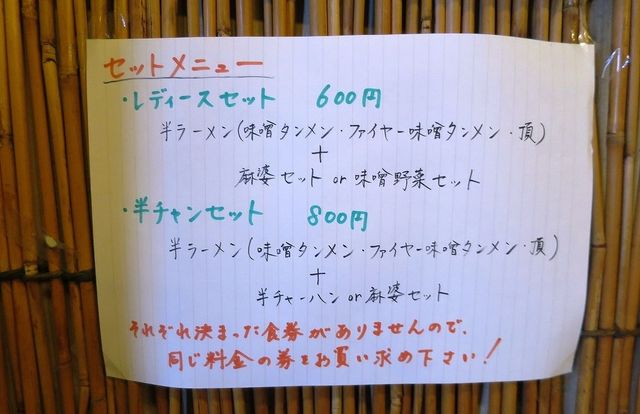 セットメニュー
・レディースセット 600円
半ラーメン(味噌タンメン・ファイヤー味噌タンメン・頂)
+
麻婆セット or 味噌野菜セット
・半チャンセット 800円
半ラーメン(味噌タンメン・ファイヤー味噌タンメン・頂)
+
半チャーハン or 麻婆セット
それぞれ決まった食券がありませんので、
同じ料金の券をお買い求め下さい!